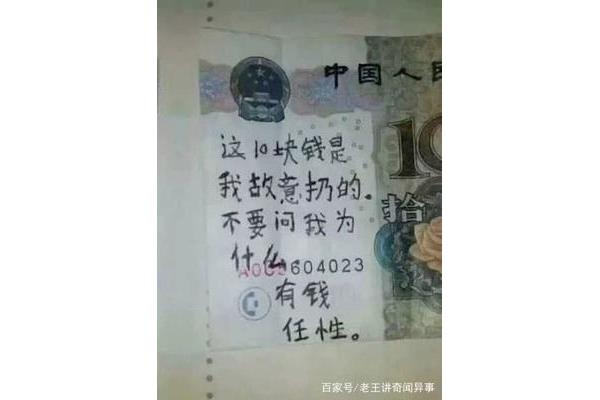 中国人民
10
这10块钱是
我故意扔的。
拾
不要问我为
什么.
604023
有钱
任性。
百家号/老王讲奇闻异事